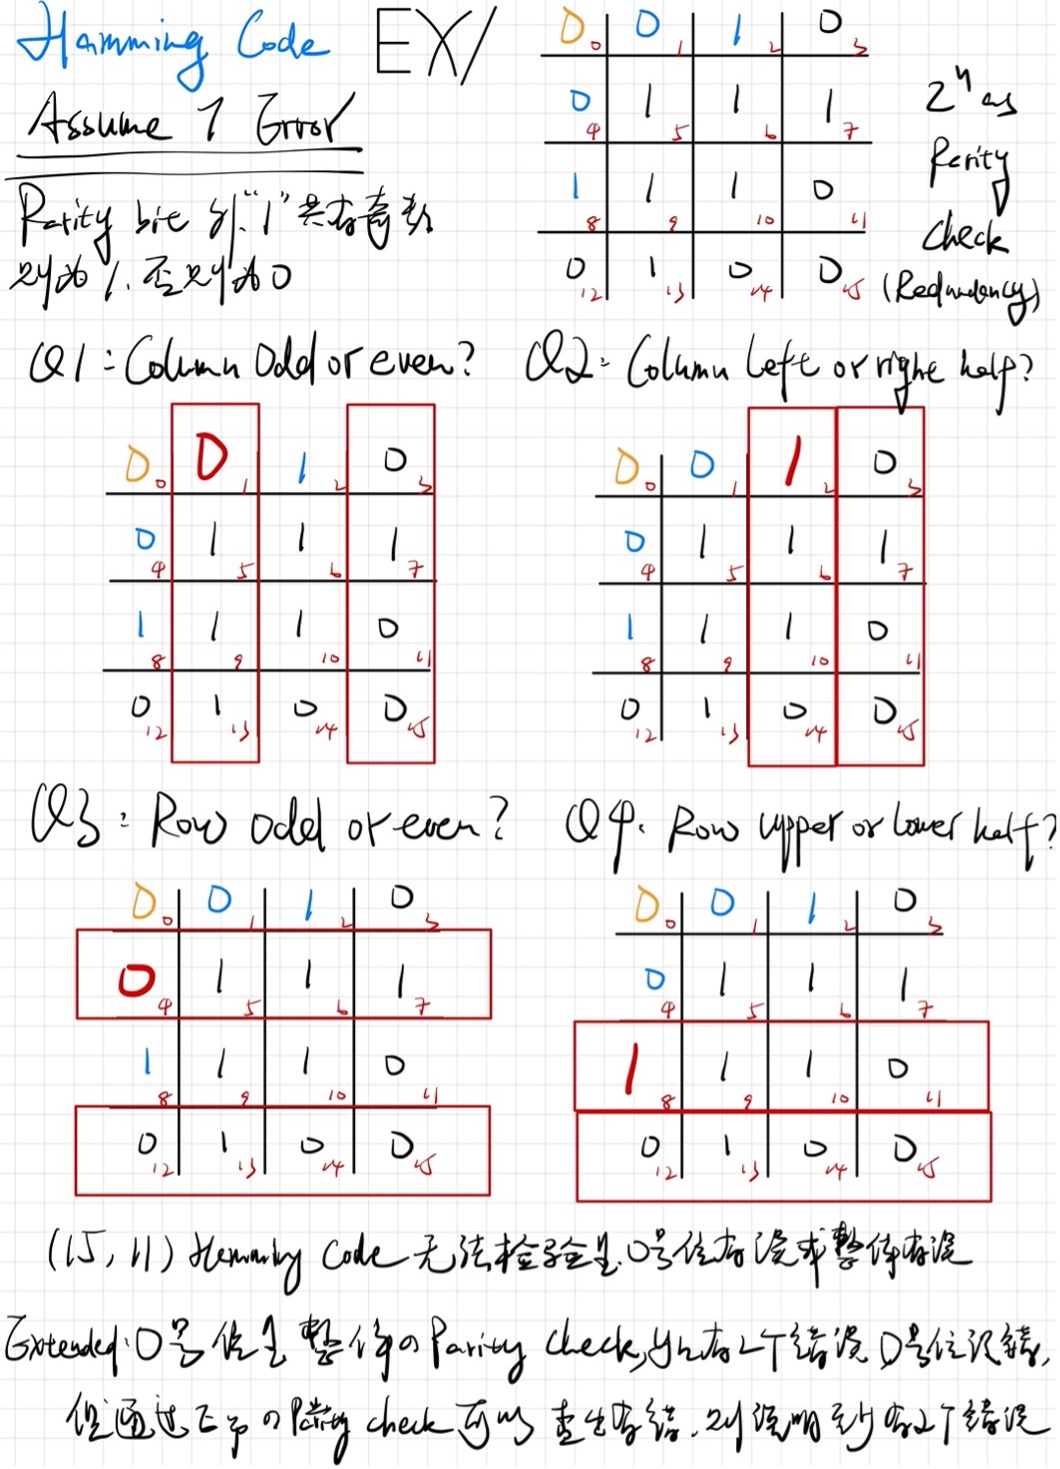 Hamming Code EX/
Assume 1 Error
Parity bit 列"1"共有奇数
则为1.否则为0
0 0 0 1 1 2 0 3
0 4 1 5 1 6 1 7
1 8 1 9 1 10 0 11
0 12 1 13 0 14 0 15
2^n as
Parity
Check
(Redundancy)
Q1:Column Odd or even?
0 0 0 1 1 2 0 3
0 4 1 5 1 6 1 7
1 8 1 9 1 10 0 11
0 12 1 13 0 14 0 15
Q2:Column left or right half?
0 0 0 1 1 2 0 3
0 4 1 5 1 6 1 7
1 8 1 9 1 10 0 11
0 12 1 13 0 14 0 15
Q3:Row odd or even?
0 0 0 1 1 2 0 3
0 4 1 5 1 6 1 7
1 8 1 9 1 10 0 11
0 12 1 13 0 14 0 15
Q4.Row upper or lower half?
0 0 0 1 1 2 0 3
0 4 1 5 1 6 1 7
1 8 1 9 1 10 0 11
0 12 1 13 0 14 0 15
(15,11) Hamming Code 无法检验是0号位有误或整体有误
Extended:0号位是整体の Parity Check,如有2个错误0号位没错,
但通过の Parity check 可以查出有错.则说明至少有2个错误